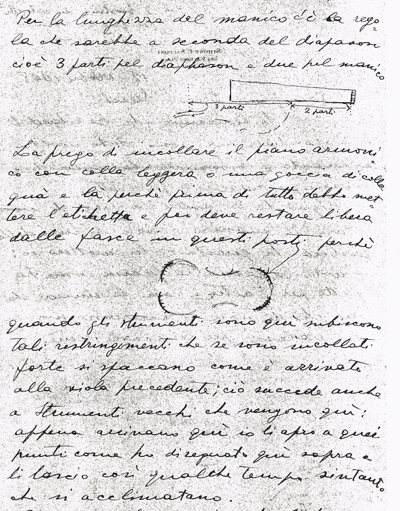 Per la lunghezza del manico c'è la rego=
la che sarebbe a seconda del diapason
cioè 3 parti pel diaphason e due pel manico
3 parti 2 parti
La prego di incollare il piano armoni=
co con colla leggera o una goccia di colla
quà e là perchè prima di tutto debbo met=
tere l'etichetta e poi deve restare libera
dalle fasce in questi posti perchè
quando gli strumenti sono quì subiscono
tali restringimenti che se sono incollati
forte si spaccano come è arrivato
alla viola precedente; ciò succede anche
a strumenti vecchi che vengono quì:
appena arrivano quì io li apro a quei
punti come ho disegnato quì sopra e
li lascio così qualche tempo sintanto
che si acclimatano.